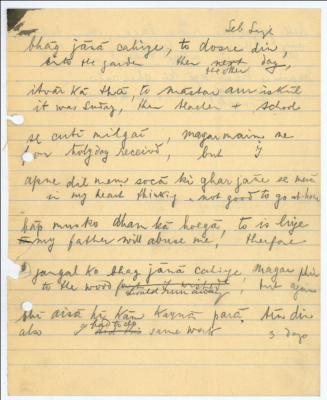 Seb Singh
bhāg jānā cahiye, to dosre din,
into the garden then next day,
the other
itvār kā thā, to māstar aur iskūl
it was Sunday, then teacher + school
se cutī milgaī, magar main ne
or holyday receivd, but I
apne dil mem socā ki ghar jāne se merā
in my heart thinking, not good to go at home
bāp mujko dhamkā hoegā, to is liye
my father will abuse me, therefore
jangal ko bhag jānā cahiye, magar phir
to the wood should run away, but again
bhi aisā hi kām karnā parā. tīn din
also I had to do same work 3 days